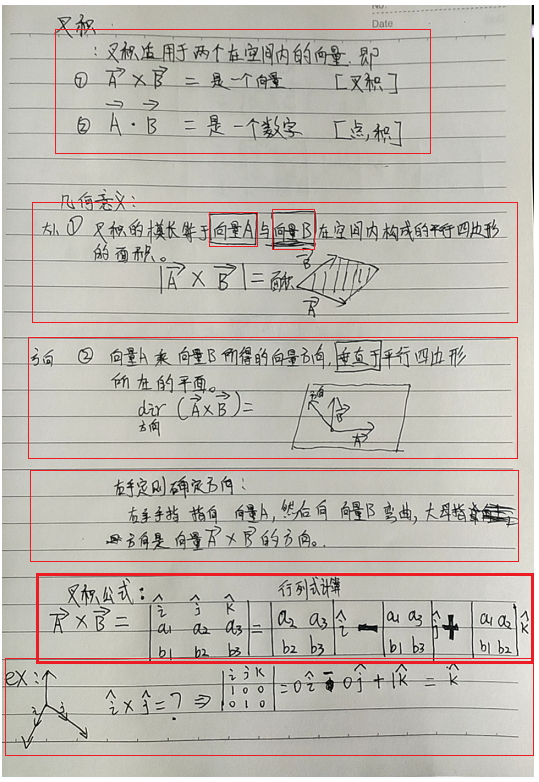 No.
Date
叉积
:叉积适用于两个在空间内的向量.即
① A × B = 是一个向量 [叉积]
② A · B = 是一个数字 [点,积]
几何意义:
大小 ① 叉积的模长等于向量A与向量B在空间内构成的平行四边形
的面积。
|A × B| = 面积
B
A
方向 ② 向量A乘向量B所得的向量方向,垂直于平行四边形
所在的平面。
dir (A×B) =
方向
B
A
右手定则确定方向:
右手手指指向向量A,然后向向量B弯曲,大母指
方向是向量A×B的方向。
叉积公式: 行列式计算
A × B = | î ĵ k̂ | = | a2 a3 | î − | a1 a3 | ĵ + | a1 a2 | k̂
| a1 a2 a3 | | b2 b3 | | b1 b3 | | b1 b2 |
| b1 b2 b3 |
ex:
î × ĵ = ? ⇒ | i j k | = 0î − 0ĵ + 1k̂ = k̂
| 1 0 0 |
| 0 1 0 |
i j